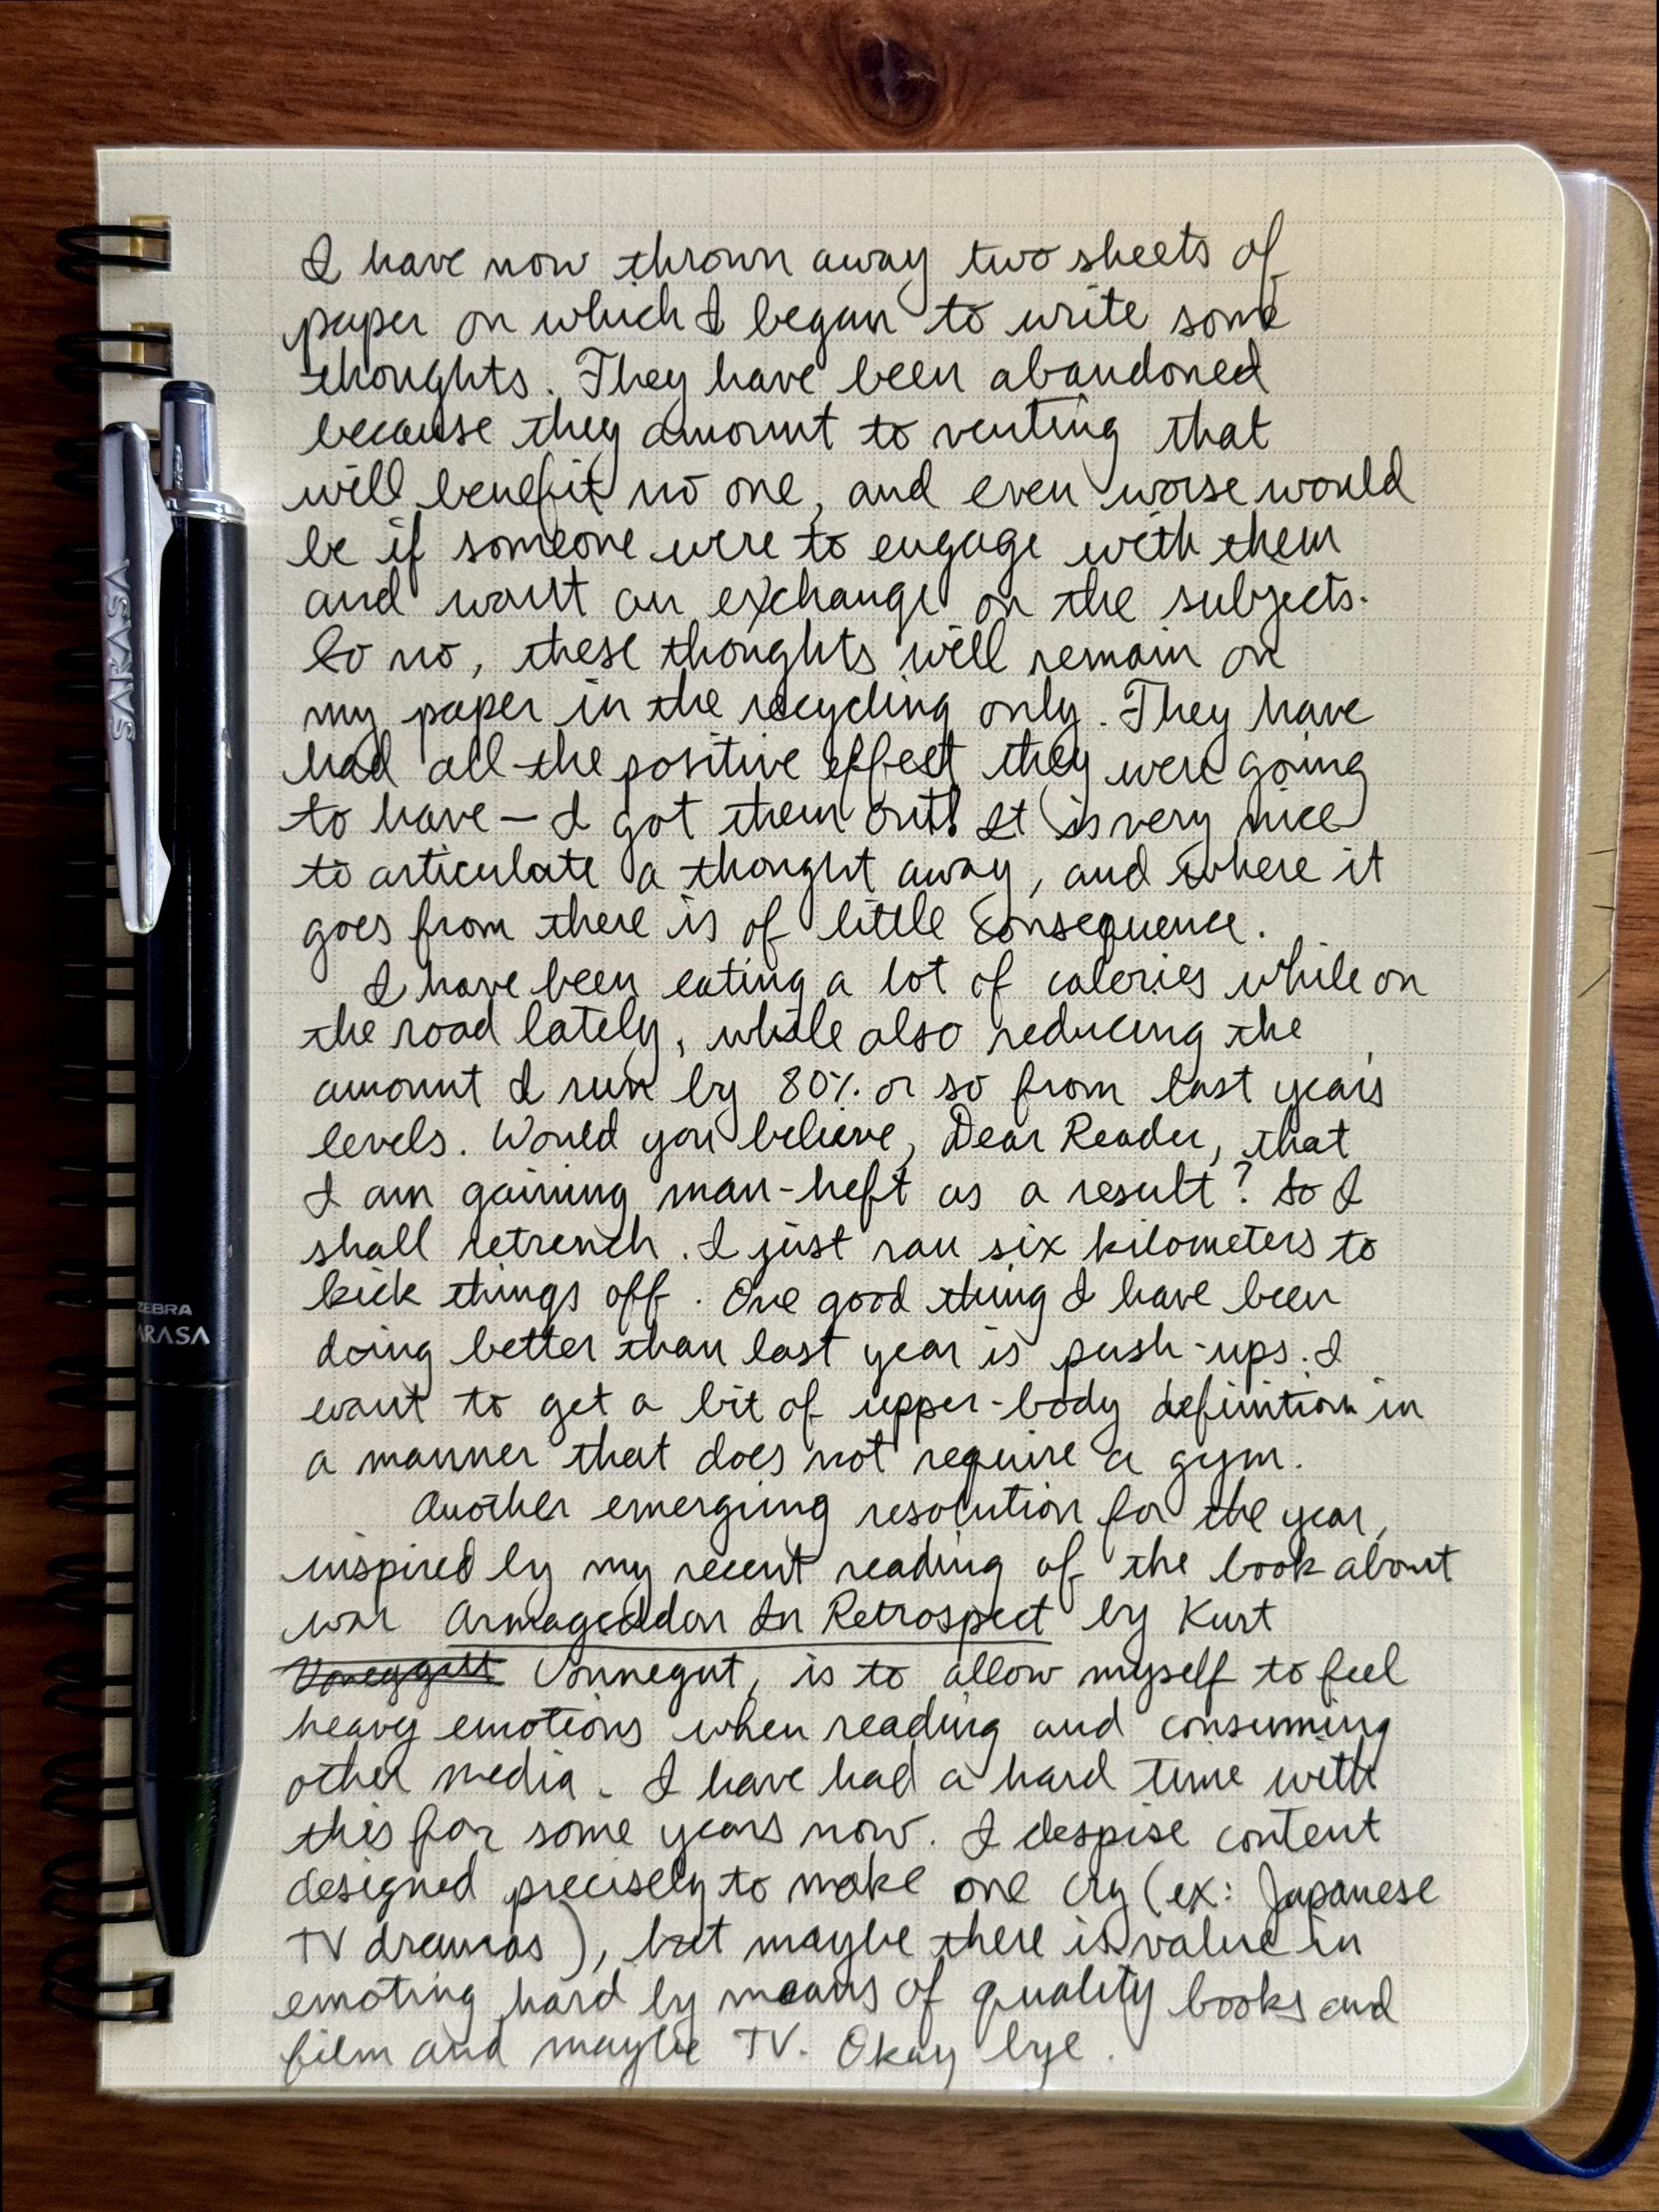 I have now thrown away two sheets of
paper on which I began to write some
thoughts. They have been abandoned
because they amount to venting that
will benefit no one, and even worse would
be if someone were to engage with them
and want an exchange on the subjects.
So no, these thoughts will remain on
my paper in the recycling only. They have
had all the positive effect they were going
to have — I got them out! It is very nice
to articulate a thought away, and where it
goes from there is of little consequence.
I have been eating a lot of calories while on
the road lately, while also reducing the
amount I run by 80% or so from last year's
levels. Would you believe, Dear Reader, that
I am gaining man-heft as a result? So I
shall retrench. I just ran six kilometers to
kick things off. One good thing I have been
doing better than last year is push-ups. I
want to get a bit of upper-body definition in
a manner that does not require a gym.
Another emerging resolution for the year,
inspired by my recent reading of the book about
war Armageddon In Retrospect by Kurt
Vonnegut, is to allow myself to feel
heavy emotions when reading and consuming
other media. I have had a hard time with
this for some years now. I despise content
designed precisely to make one cry (ex: Japanese
TV dramas), but maybe there is value in
emoting hard by means of quality books and
film and maybe TV. Okay bye.
SARASA
ZEBRA
ARASA